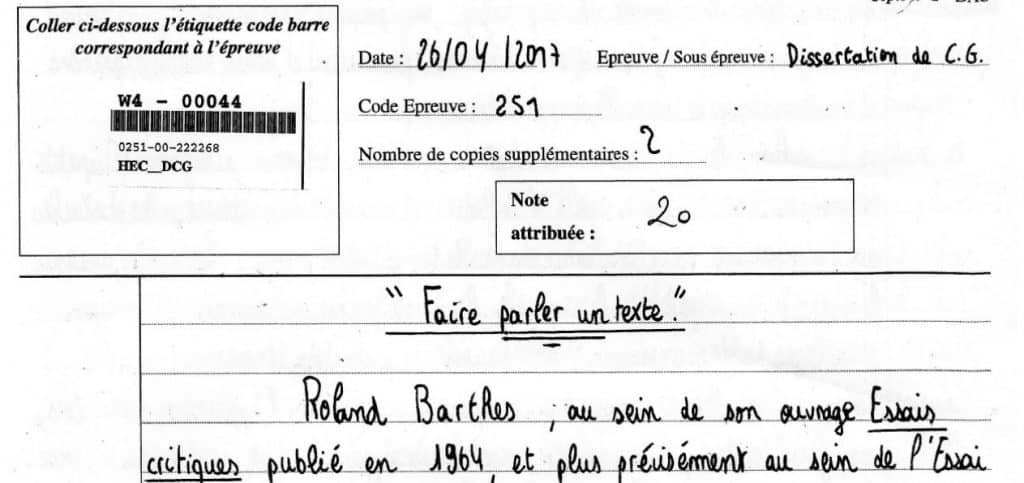 Coller ci-dessous l'étiquette code barre
correspondant à l'épreuve
W4 - 00044
0251-00-222268
HEC_DCG
Date : 26/04/2017 Epreuve / Sous épreuve : Dissertation de C.G.
Code Epreuve : 251
Nombre de copies supplémentaires : 2
Note
attribuée : 20
"Faire parler un texte"
Roland Barthes, au sein de son ouvrage Essais
critiques publié en 1964, et plus précisément au sein de l'Essai